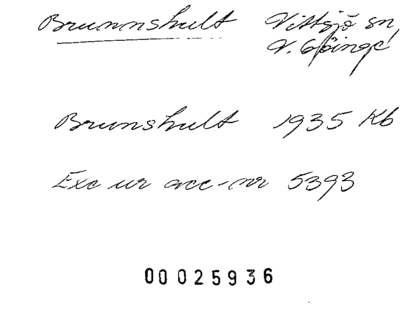 Brunnshult Vittsjö sn,
V. Göinge
Brunshult 1935 Kb
Exc ur acc-nr 5393
00025936